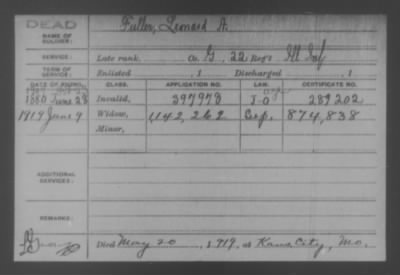 DEAD
NAME OF SOLDIER: Fuller, Leonard A.
SERVICE: Late rank, Co. G, 22 Reg't Ill Inf
TERM OF SERVICE: Enlisted , 1 Discharged , 1
DATE OF FILING. CLASS. APPLICATION NO. LAW. CERTIFICATE NO.
1880 June 28 Invalid, 397978 289202
1919 June 9 Widow, 1142,262 874,838
Minor,
ADDITIONAL SERVICES:
REMARKS:
Died May 20, 1919, at Kans. City, Mo.